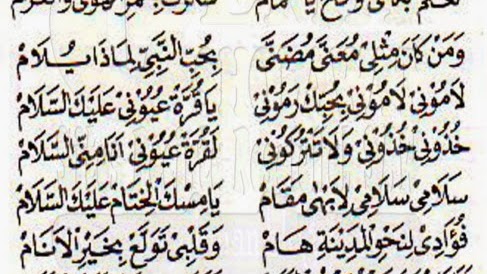 وَمَنْ كَانَ مِثْلِى مُعَنَّى مُضَنَّى بِحُبِّ النَّبِيِّ لِمَاذَا يُلَامْ
لَامُوْنِيْ لَامُوْنِيْ بِحُبِّكَ رَمَوْنِيْ يَا قُرَّةَ عُيُوْنِيْ عَلَيْكَ السَّلَامْ
خُذُوْنِيْ خُذُوْنِيْ وَلَا تَتْرُكُوْنِيْ لِقُرَّةِ عُيُوْنِيْ اَنَا مِنِّى السَّلَامْ
سَلَامِيْ سَلَامِيْ لِاَبْهٰى مَقَامْ يَا مِسْكَ الْخِتَامْ عَلَيْكَ السَّلَامْ
فُؤَادِيْ لِنَحْوِ الْمَدِيْنَةِ هَامْ وَقَلْبِيْ تَوَلَّعْ بِخَيْرِ الْاَنَامْ